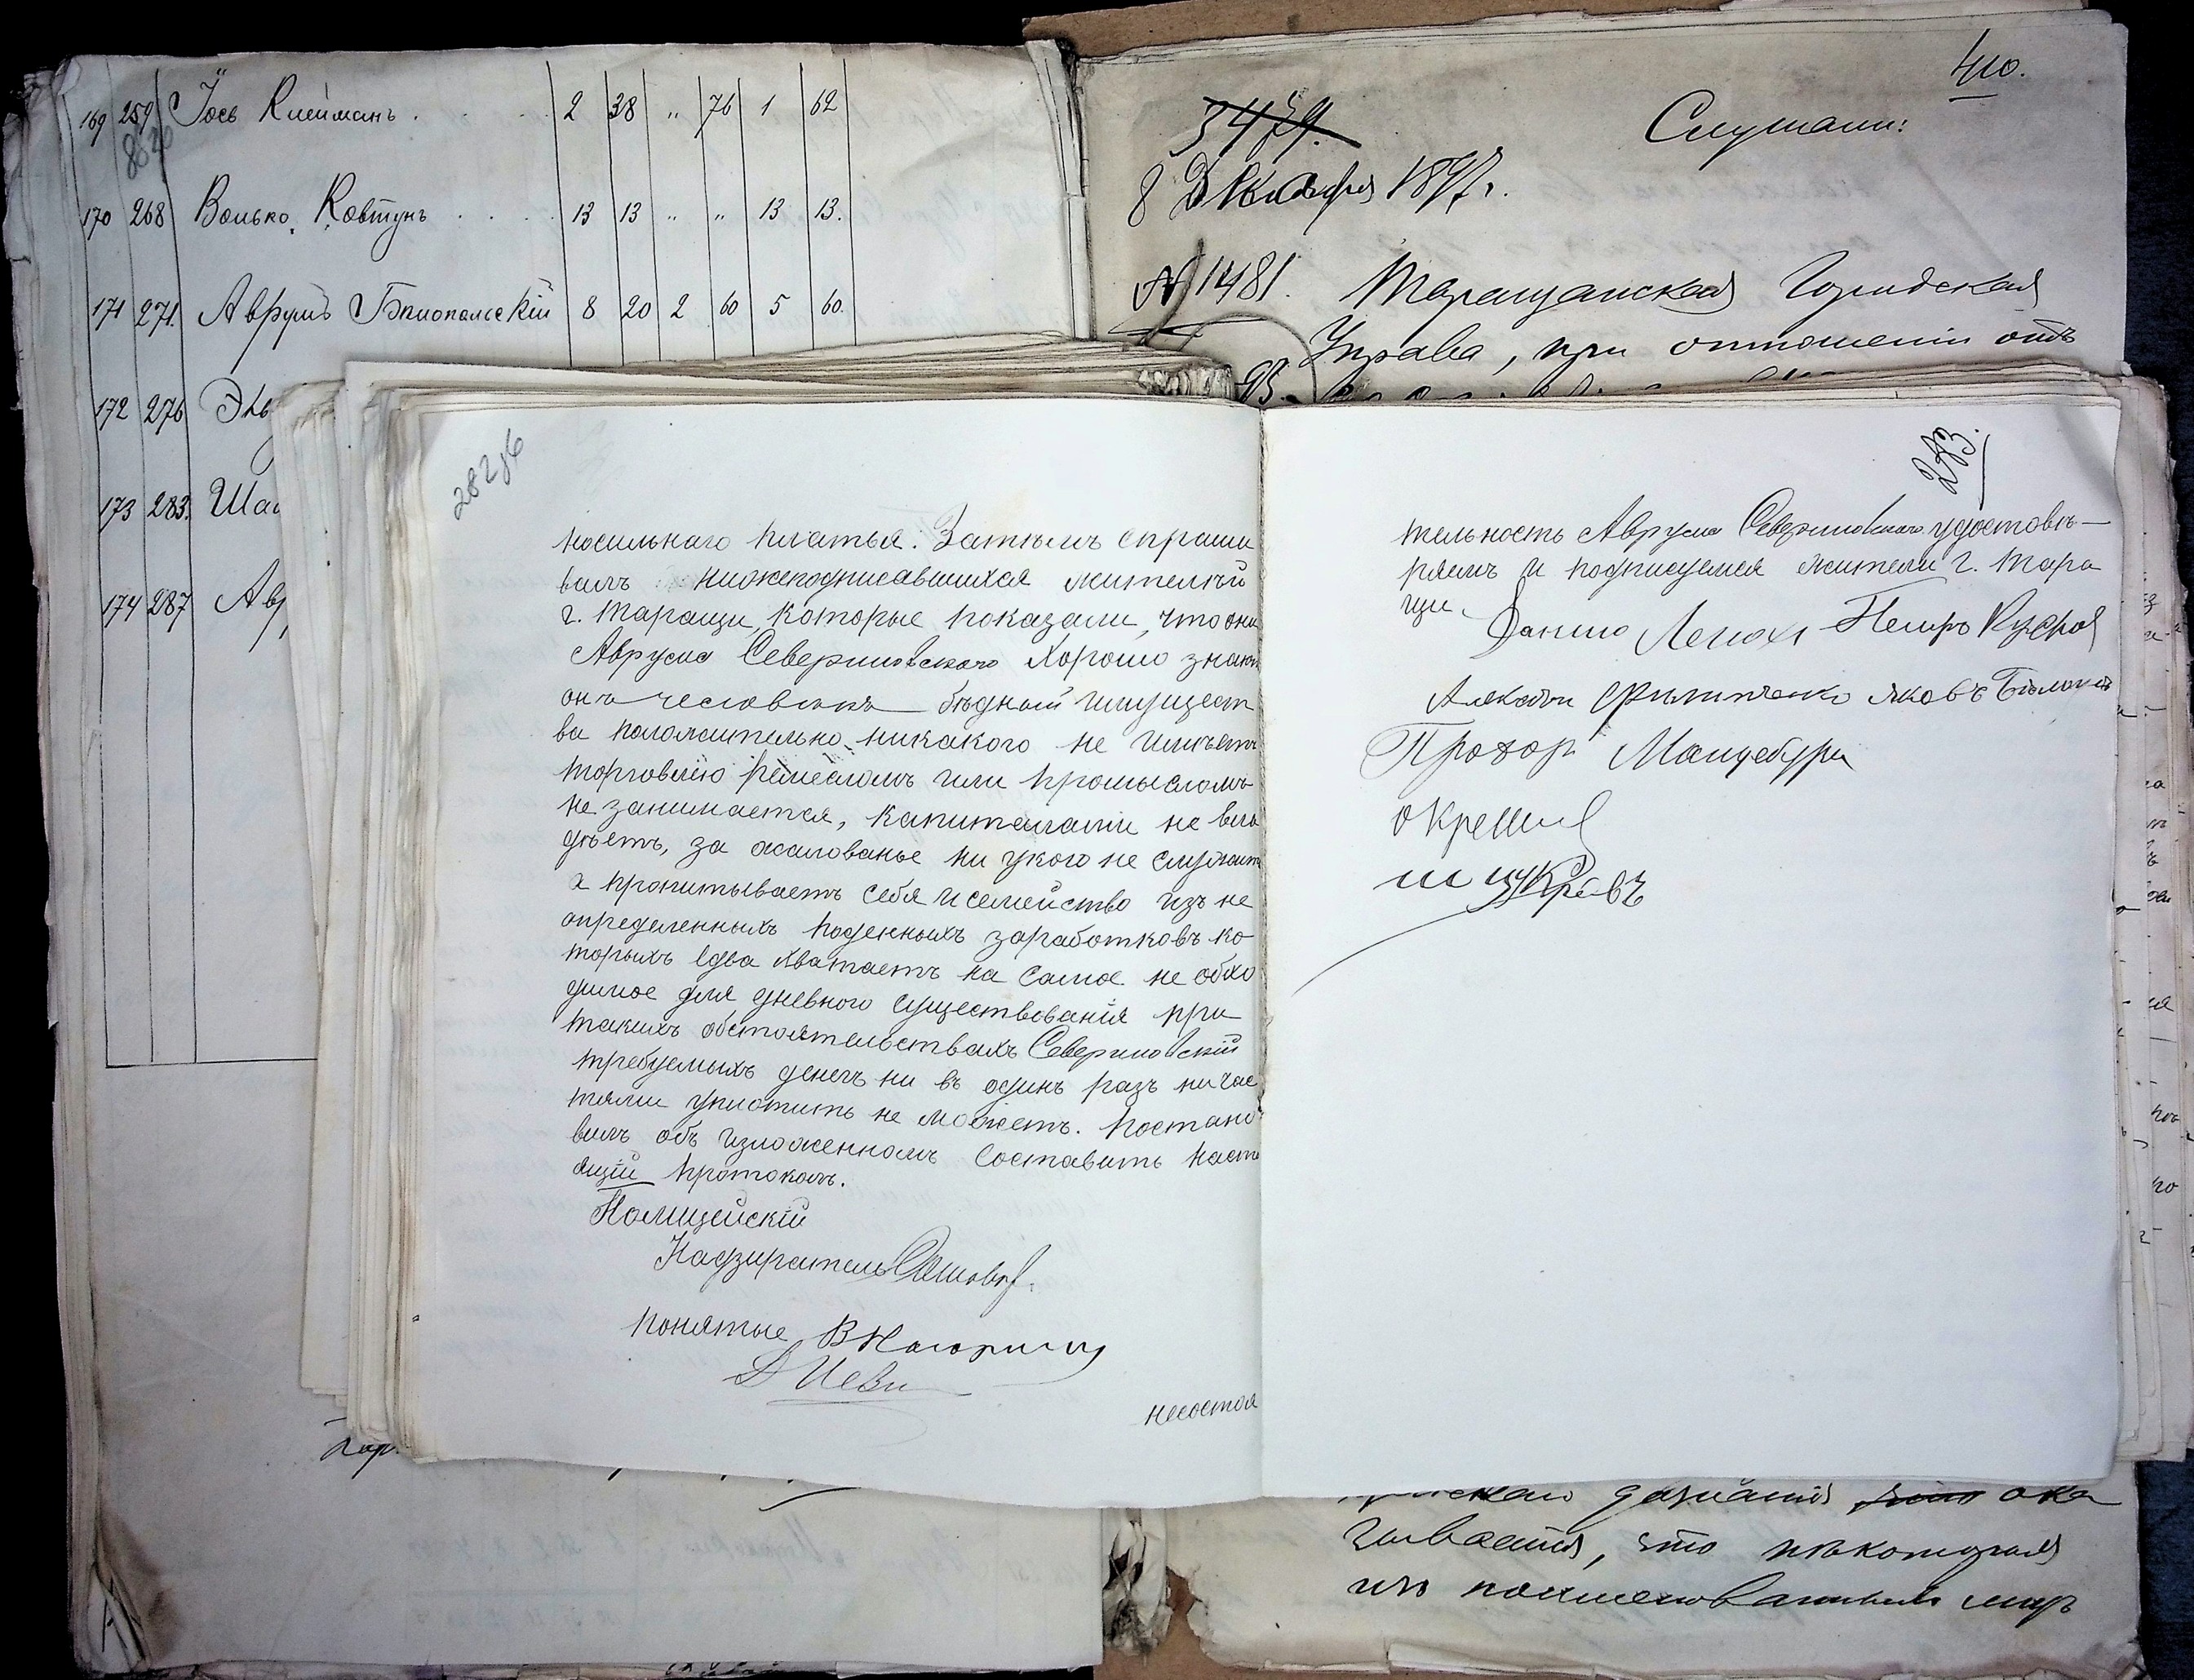 169 259 Іось Клейманъ . . . . 2 38 " 76 1 62
170 268 Волько Ковтунъ . . . . 13 13 " " 13 13.
171 271. Аврумъ Бялопольскій 8 20 2 60 5 60.
172 276
173 283.
174 287
410.
Слушали:
8 Декабря 1897 г.
№ 1481. Таращанская Городская
Управа, при отношеніи отъ
282 об
носильнаго платья. Затѣмъ спраши
валъ нижеподписавшихся жителей
г. Таращи, которые показали, что они
Аврума Севериновскаго хорошо знаютъ
онъ человѣкъ бѣдный имущест
ва положительно никакого не имѣетъ
торговлею ремесломъ или промысломъ
не занимается, капиталами не вла
дѣетъ, за жалованье ни у кого не служитъ
а пропитываетъ себя и семейство изъ не
опредѣленныхъ поденныхъ заработковъ ко
торыхъ едва хватаетъ на самое не обхо
димое для дневного существованія при
такихъ обстоятельствахъ Севериновскій
требуемыхъ денегъ ни въ одинъ разъ ни час
тями уплотить не можетъ. Постано
вилъ объ изложенномъ составить насто
ящій протоколъ.
Полицейскій
Надзиратель
Понятые
несостоя
283.
тельность Аврума Севериновскаго удостовѣ-
ряемъ и подписуемся жители г. Тара
щи. Данило Петръ
Филипченко Яковъ
Прохор
дознанія ока
зывается, что нѣкоторыя
изъ поименованныхъ лицъ